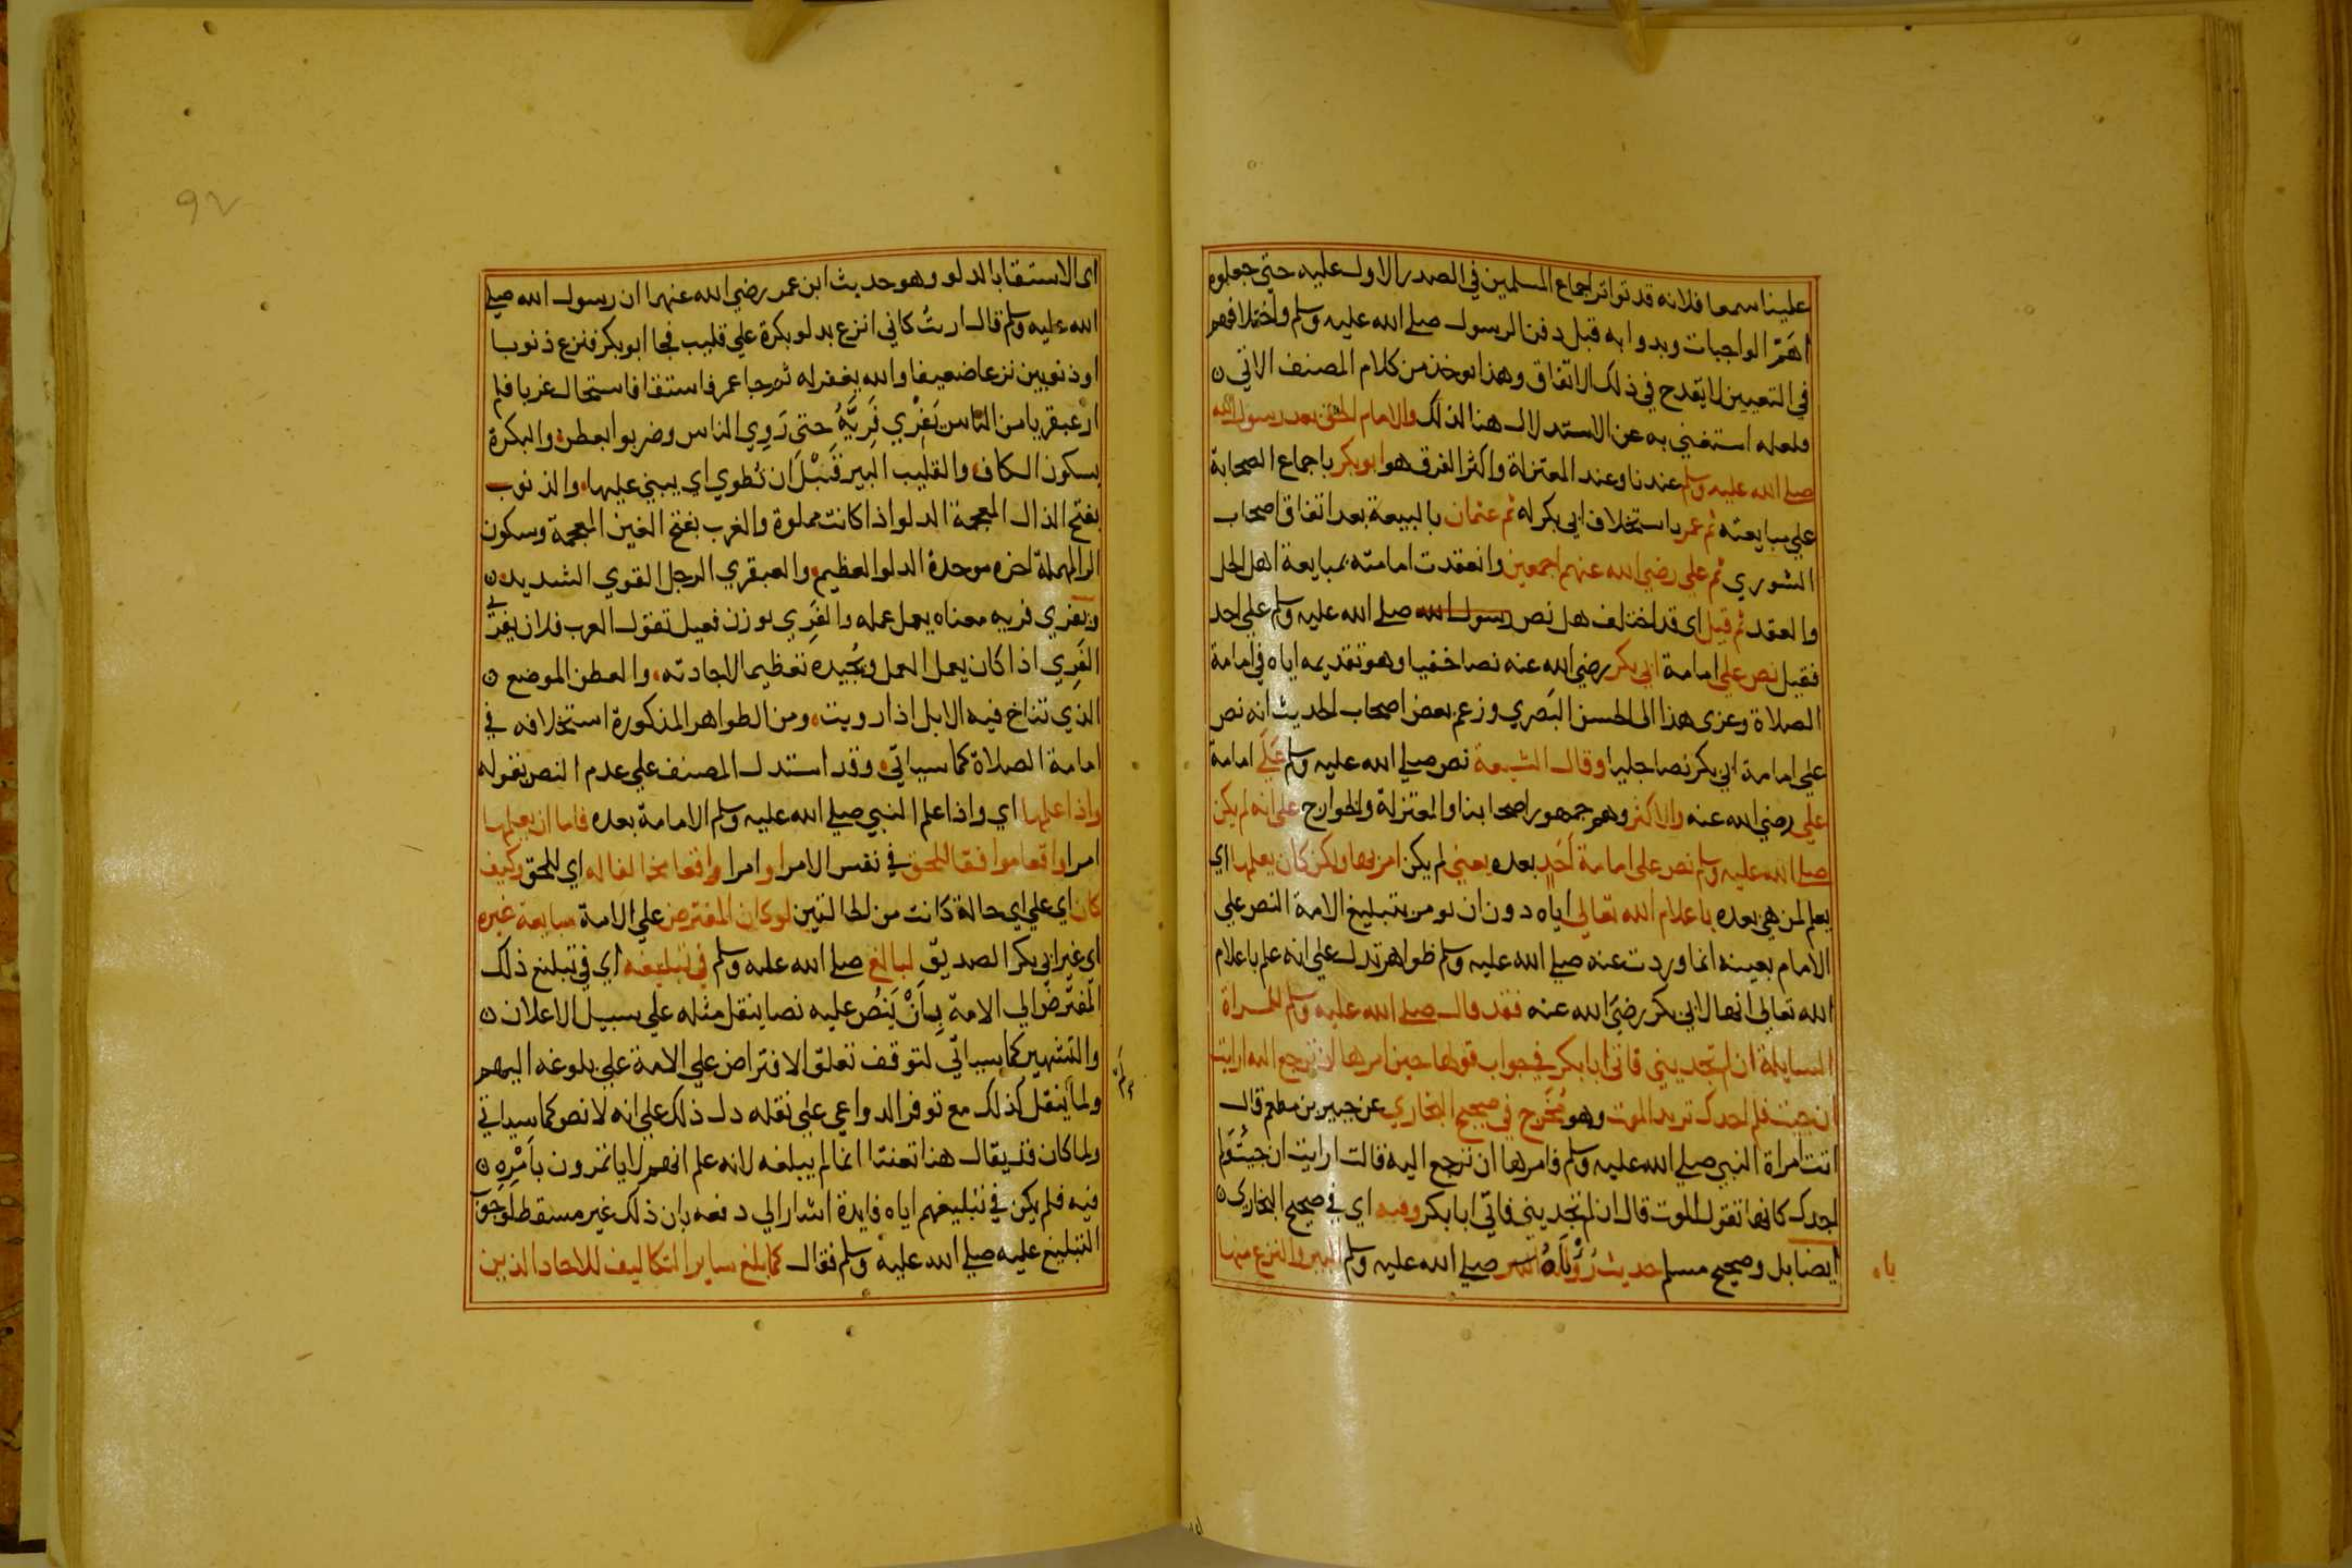 علينا سمعا فلانه قد تواتر اجماع المسلمين في الصدر الاول عليه حتي جعلوه
اهَمّ الواجبات وبدوا به قبل دفن الرسول صلي الله عليه وسلم واختلافهم
في التعيين لا يقدح في ذلك الاتفاق وهذا يوخذ من كلام المصنف الاتي
ولعله استغني به عن الاستدلال هنا لذلك والامام الحق بعد رسول الله
صلي الله عليه وسلم عندنا وعند المعتزلة واكثر الفرق هو ابو بكر باجماع الصحابة
علي مبايعته ثم عمر باستخلاف ابي بكر له ثم عثمان بالبيعة بعد اتفاق اصحاب
الشوري ثم علي رضي الله عنهم اجمعين وانعقدت امامته بمبايعة اهل الحل
والعقد ثم قيل اي قد اختلف هل نص رسول الله صلي الله عليه وسلم علي احد
فقيل نص علي امامة ابي بكر رضي الله عنه نصا خفيا وهو تقديمه اياه في امامة
الصلاة وعزي هذا الي الحسن البَصري وزعم بعض اصحاب الحديث انه نص
علي امامة ابي بكر نصا جليا وقال الشيعة نص صلي الله عليه وسلم عَلَي امامة
علي رضي الله عنه والاكثر وهم جمهور اصحابنا والمعتزلة والخوارج علي انه لم يكن
صلي الله عليه وسلم نص علي امامة اَحَدٍ بعده يعني لم يكن امر بها ولكن كان يعلمها اي
يعلم لمن هي بعده باعلام الله تعالي اياه دون ان يومر بتبليغ الامة النص علي
الامام بعينه انما وردت عنه صلي الله عليه وسلم ظواهر تدل علي انه علم باعلام
الله تعالي انها لابي بكر رضَي الله عنه فقد قال صلي الله عليه وسلم للمراة
السايلة ان لم تجديني فاتي ابا بكر في جواب قولها حين امرها ان ترجع اليه ارايت
ان جيت فلم اجدك تريد الموت وهو مُخَرج في صحيح البخاري عن جبير بن مطعم قال
اتت امراة النبي صلي الله عليه وسلم فامرها ان ترجع اليه قالت ارايت ان جيتُ وَلم
اجدك كانها تقول الموت قال ان لم تجديني فاتي ابا بكر وفيه اي في صحيح البخاري
ايضا بل وصحيح مسلم حديث رُؤْيَاهُ صلي الله عليه وسلم البير والنزع منها
ياه
اي الاستقا بالدلو وهو حديث ابن عمر رضي الله عنهما ان رسول الله صلي
الله عليه وسلم قال اريتُ كاني انزع بدلو بكرة علي قليب فجا ابو بكر فنزع ذنوبا
او ذنوبين نزعا ضعيفا والله يغفر له ثم جا عمر فاستقا فاستحال غربا فلم
ار عبقريا من الناس يَفرْي فَرِيَّهُ حتي رَوِي الناس وضربوا بعطن والبكرة
بسكون الكاف والقليب البير قَبْلَ ان تُطوي اي يبني عليها والذنوب
بفتح الذال المعجمة الدلو اذا كانت مملوة والغرب بفتح الغين المعجمة وسكون
الرا المهملة اخره موحدة الدلو العظيم والعبقري الرجل القوي الشديد
ويفري فريه معناه يعمل عمله والفَرِي بوزن فعيل تقول العرب فلان يفري
الفَرِي اذا كان يعمل العمل ويُجيده تعظيما لاجادته والعطن الموضع
الذي تناخ فيه الابل اذا رويت ومن الظواهر المذكورة استخلافه في
امامة الصلاة كما سياتي وقد استدل المصنف علي عدم النص بقوله
واذا علمها اي واذا علم النبي صلي الله عليه وسلم الامامة بعده فاما ان يعلمها
امرا واقعا موافقا للحق في نفس الامر او امرا واقعا مخالفا له اي للحق وكيف
كان اي علي اي حالة كانت من الحالتين لو كان المفترض علي الامة مبايعة غيره
اي غير ابي بكر الصديق لبالغ صلي الله عليه وسلم في تبليغه اي في تبليغ ذلك
المفترَض الي الامة بِاَنْ يَنُص عليه نصا ينقل مثله علي سبيل الاعلان
والتشهير كما سياتي لتوقف تعلق الافتراض علي الامة علي بلوغه اليهم
ولما ينقل كذلك مع توفر الدواعي علي نقله دل ذلك علي انه لا نص كما سياتي
ولما كان قد يقال هنا تعنتا انما لم يبلغه لانه علم انهم لا ياتمرون بامْرِه
فيه فلم يكن في تبليغهم اياه فايدة اشار الي دفعه بان ذلك غير مسقط لوجوب
التبليغ عليه صلي الله عليه وسلم فقال كما بلغ ساير التكاليف للاحاد الذين